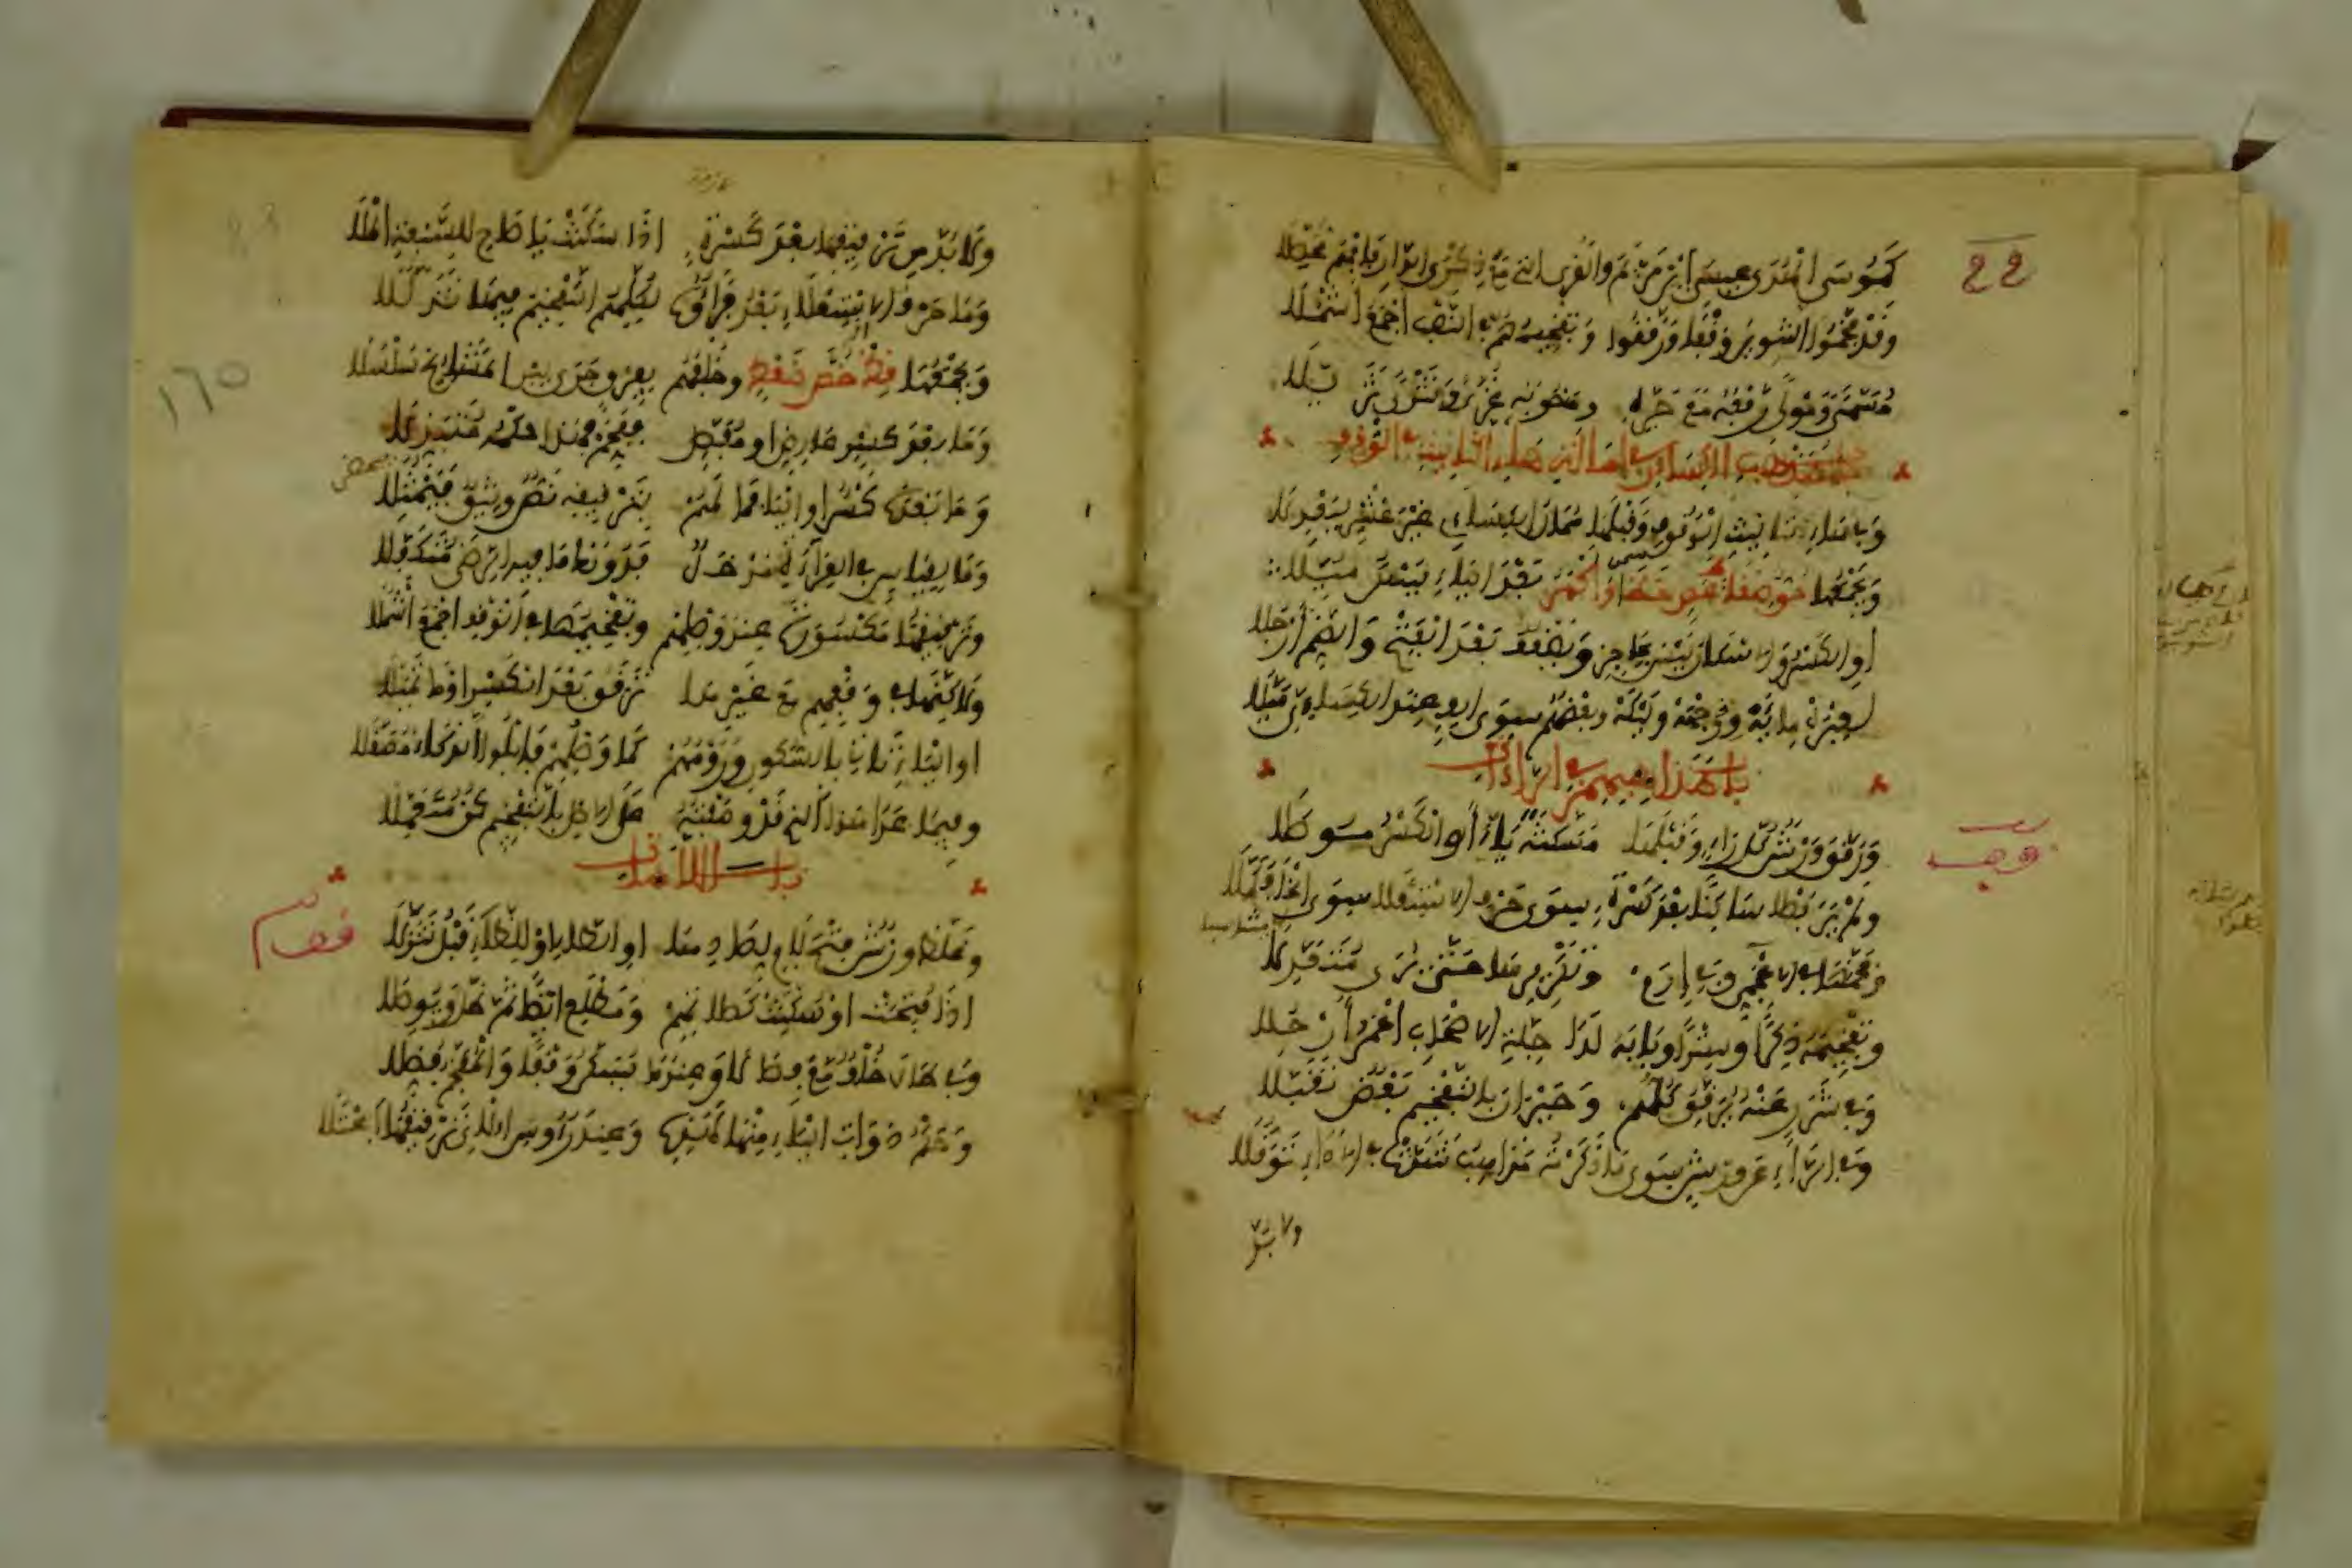 كموسى الهدى عيسى ابن مريم والقرى التي مع ذكرى الدار فافهم محصلا
وقد فخموا التنوين وقفا ورققوا وتفخيمهم في النصب أجمع أشملا
مسمى ومولى رفعه مع جره ومنصوبه غزى وتترى تزيلا
باب مذهب الكسائي في إمالة هاء التأنيث في الوقف
وفي هاء تأنيث الوقوف وقبلها ممال الكسائي غير عشر ليعدلا
ويجمعها حق ضغاط عص خظا وأكهر بعد الياء يسكن ميلا
أو الكسر والإسكان ليس بحاجز ويضعف بعد الفتح والضم أرجلا
لعبره مائه وجهه وليكه وبعضهم سوى ألف عند الكسائي ميلا
باب مذاهبهم في الراءات
ورقق ورش كل راء وقبلها مسكنة ياء أو الكسر موصلا
ولم ير فصلا ساكنا بعد كسرة سوى حرف الاستعلا سوى الخا فكملا
وفخمها في الأعجمي وفي إرم وتكريرها حتى يرى متعدلا
وتفخيمه ذكرا وسترا وبابه لدى جلة الأصحاب أعمر أرحلا
وفي شرر عنه يرقق كلهم وحيران بالتفخيم بعض تقبلا
وفي الراء عن ورش سوى ما ذكرته مذاهب شذت في الأداء توقلا
ولا بد
ولا بد من ترقيقها بعد كسرة إذا سكنت يا صاح للسبعة الملا
وما حرف الاستعلاء بعد فراؤه لكلهم التفخيم فيها تذللا
ويجمعها قظ خص ضغط وخلفهم بفرق جرى بين المشايخ سلسلا
وما بعد كسر عارض أو مفصل ففخم فهذا حكمه متبذلا
وما بعده كسر أو اليا فما لهم بترقيقه نص وثيق فيمثلا
وما لقياس في القراءة مدخل فدونك ما فيه الرضى متكفلا
وترقيقها مكسورة عند وصلهم وتفخيمها في الوقف أجمع أشملا
ولكنها في وقفهم مع غيرها ترقق بعد الكسر أو ما تميلا
أو الياء تأتي بالسكون ورومهم كما وصلهم فابل الذكاء مصقلا
وفيما عدا هذا الذي قد وصفته على الأصل بالتفخيم كن متعملا
باب اللامات
وغلظ ورش فتح لام لصادها أو الطاء أو للظاء قبل تنزلا
إذا فتحت أو سكنت كصلاتهم ومطلع أيضا ثم ظل ويوصلا
وفي طال خلف مع فصالا وعندما يسكن وقفا والمفخم فضلا
وحكم ذوات الياء منها كهذه وعند رءوس الآي ترقيقها اعتلا